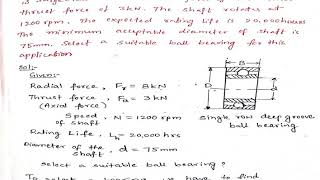 thrust force of 3kN. The shaft rotates at
1200 rpm. The expected rating life is 20,000 hours
The minimum acceptable diameter of shaft is
75mm. Select a suitable ball bearing for this
application.
Sol:-
Given:-
Radial force, Fr = 8kN
Thrust force, Fa = 3kN
(Axial force)
Speed of shaft, N = 1200 rpm
Rating Life, Lh = 20,000 hrs
Diameter of the shaft, d = 75mm
B
D
d
Single row deep groove
ball bearing
Select a suitable ball bearing?
To select a bearing, we have to find